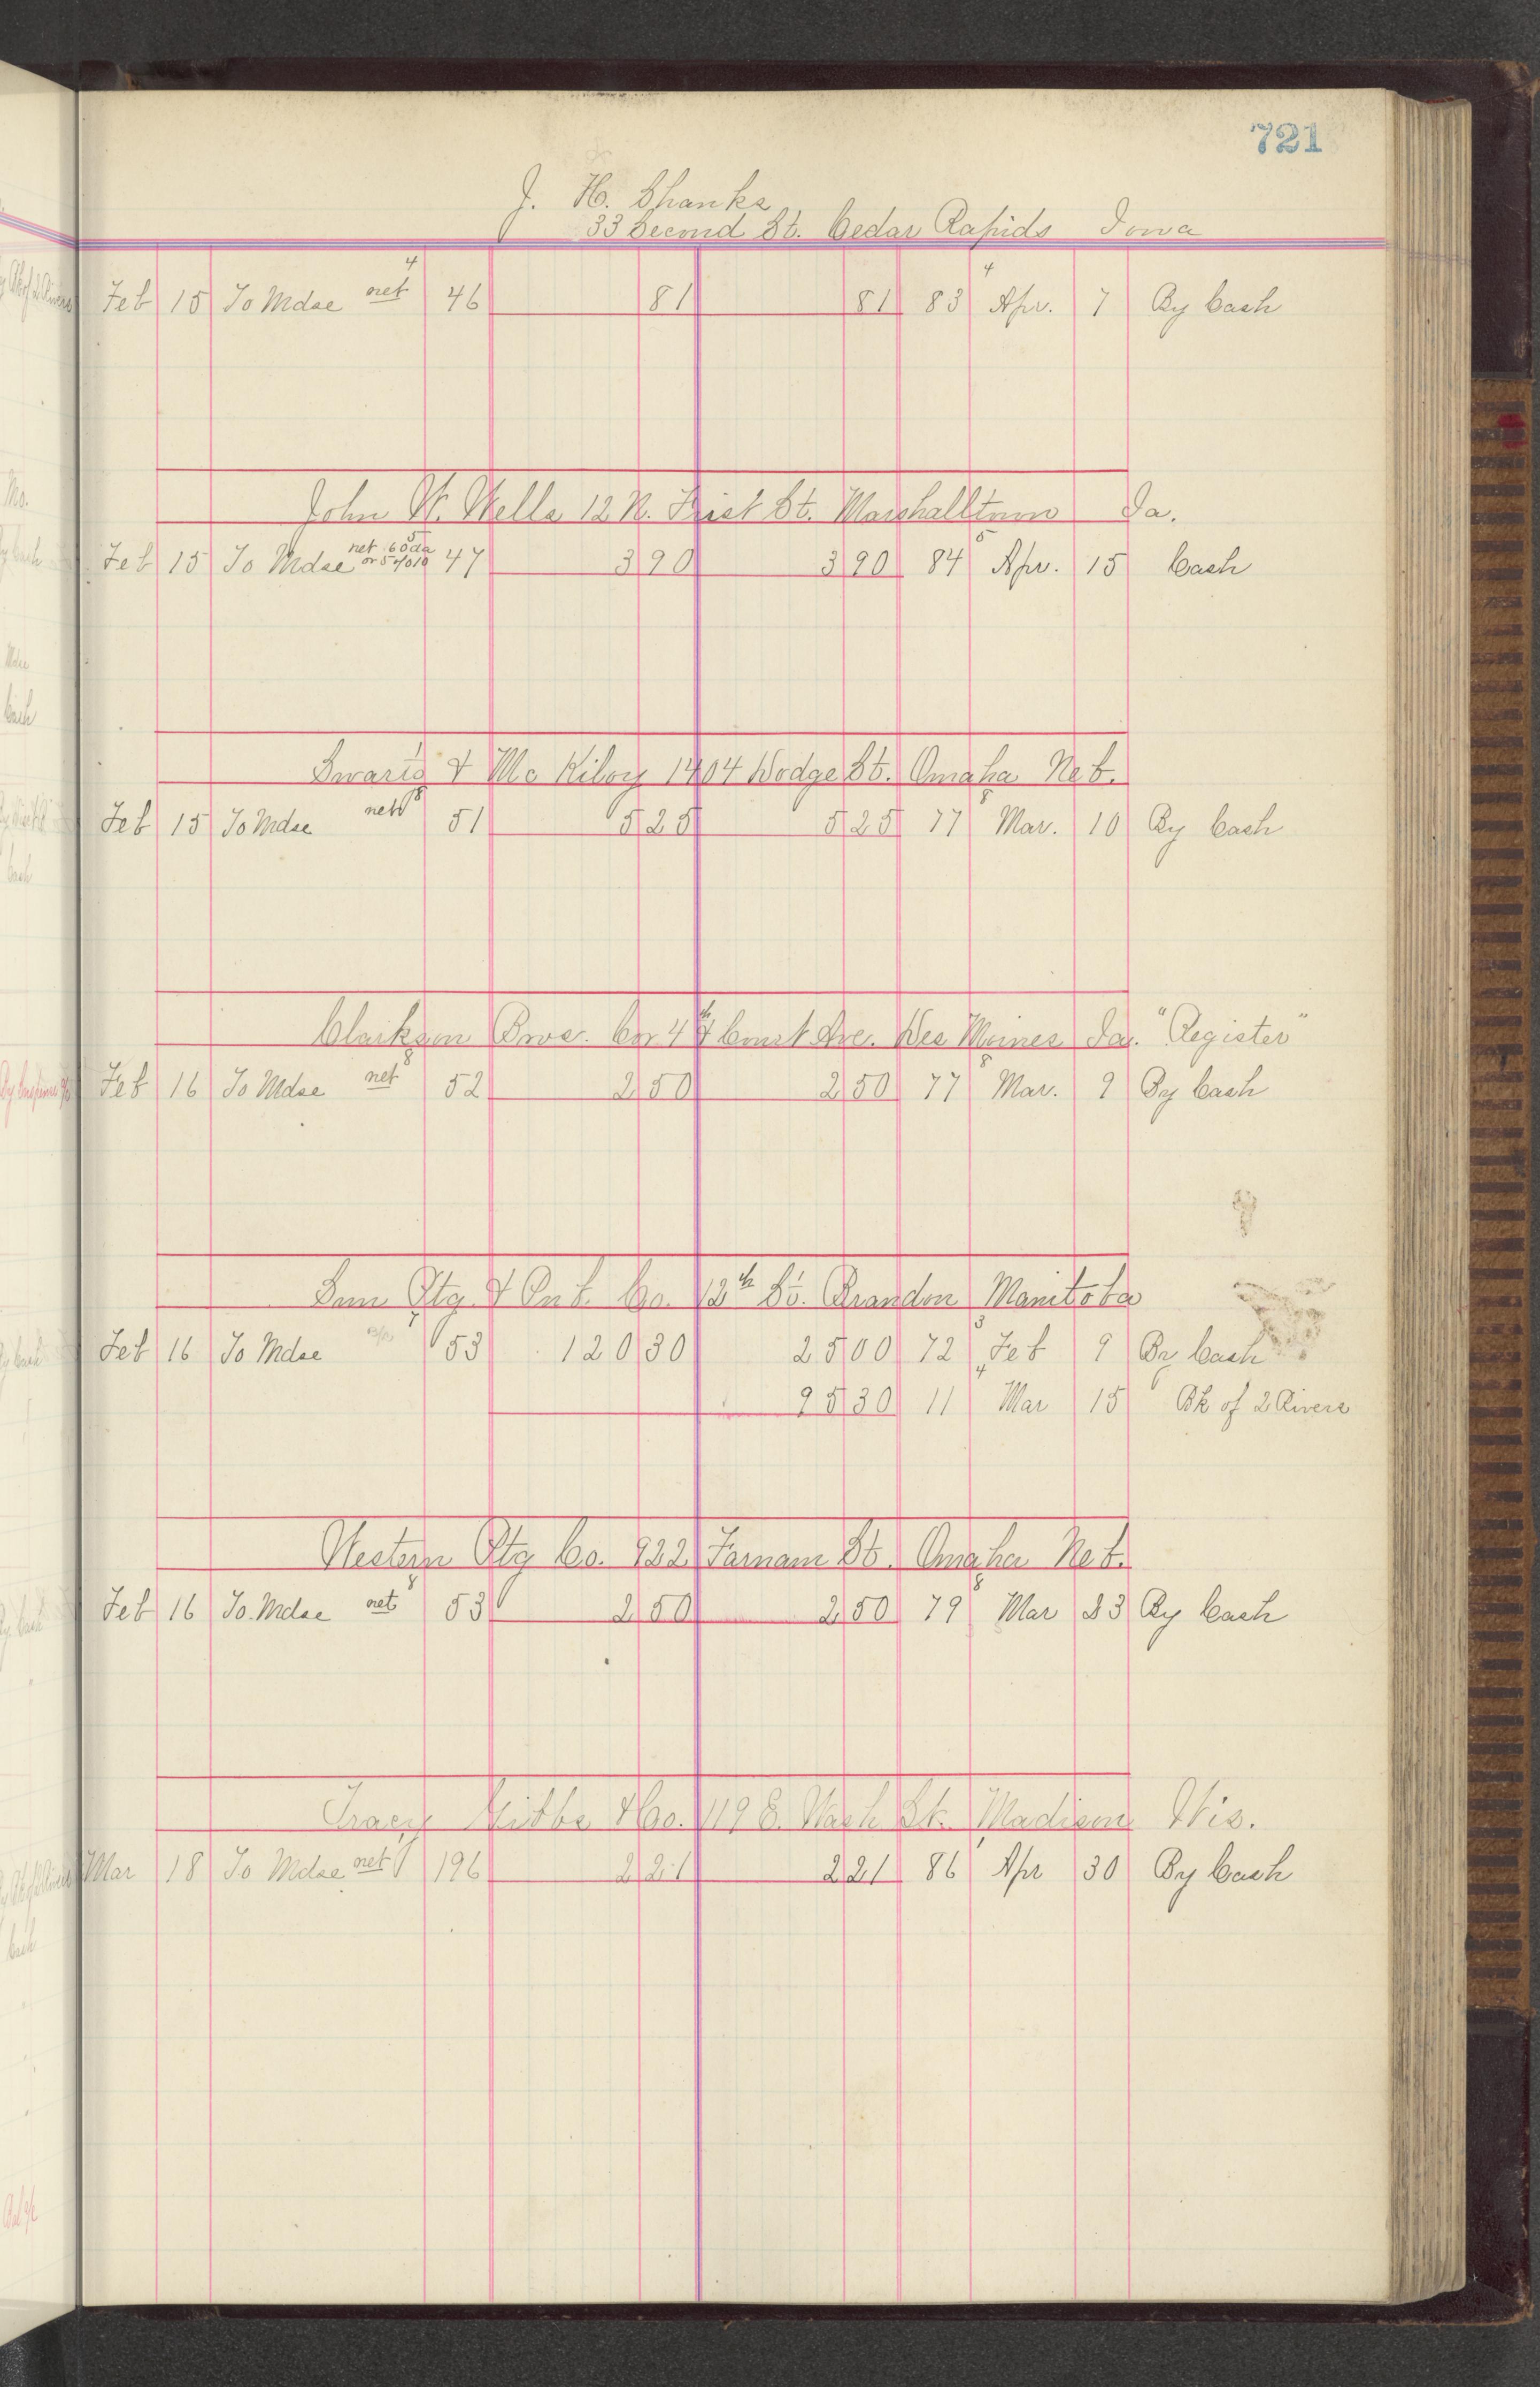 721
J. H. Shanks
33 Second St. Cedar Rapids Iowa
4 4
Feb 15 To Mdse net 46 81 81 83 Apr. 7 By Cash
John W. Wells 12 N. First St. Marshalltown Ia.
5 5
Feb 15 To Mdse net 60 da or 5%10 47 3 90 3 90 84 Apr. 15 Cash
& Mc Kiloy 1404 Dodge St. Omaha Neb.
8 8
Feb 15 To Mdse net 51 5 25 5 25 77 Mar. 10 By Cash
Clarkson Bros. Cor 4th & Court Ave. Des Moines Ia. "Register"
8 8
Feb 16 To Mdse net 52 2 50 2 50 77 Mar. 9 By Cash
Sun Ptg & Pub. Co. 12th St. Brandon Manitoba
3
Feb 16 To Mdse 53 120 30 25 00 72 Feb 9 By Cash
4
95 30 11 Mar 15 Bk of 2 Rivers
Western Ptg Co. 922 Farnam St. Omaha Neb.
8 8
Feb 16 To Mdse net 53 2 50 2 50 79 Mar 23 By Cash
Tracy Gibbs & Co. 119 E. Wash St. Madison Wis.
Mar 18 To Mdse net 196 2 21 2 21 86 Apr 30 By Cash